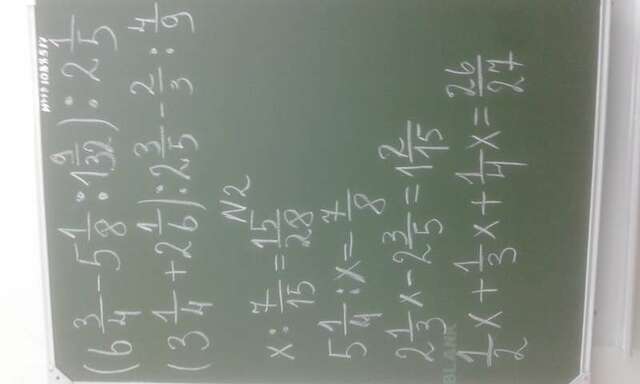 (6 3/4 - 5 1/8 : 1 9/32) : 2 1/5
(3 1/4 + 2 1/6) : 2 3/5 - 2/3 : 4/9
N2
x : 7/15 = 15/28
5 1/4 : x = 7/8
2 1/3 x - 2 3/5 = 1 2/15
BLANK
1/2 x + 1/3 x + 1/4 x = 26/27